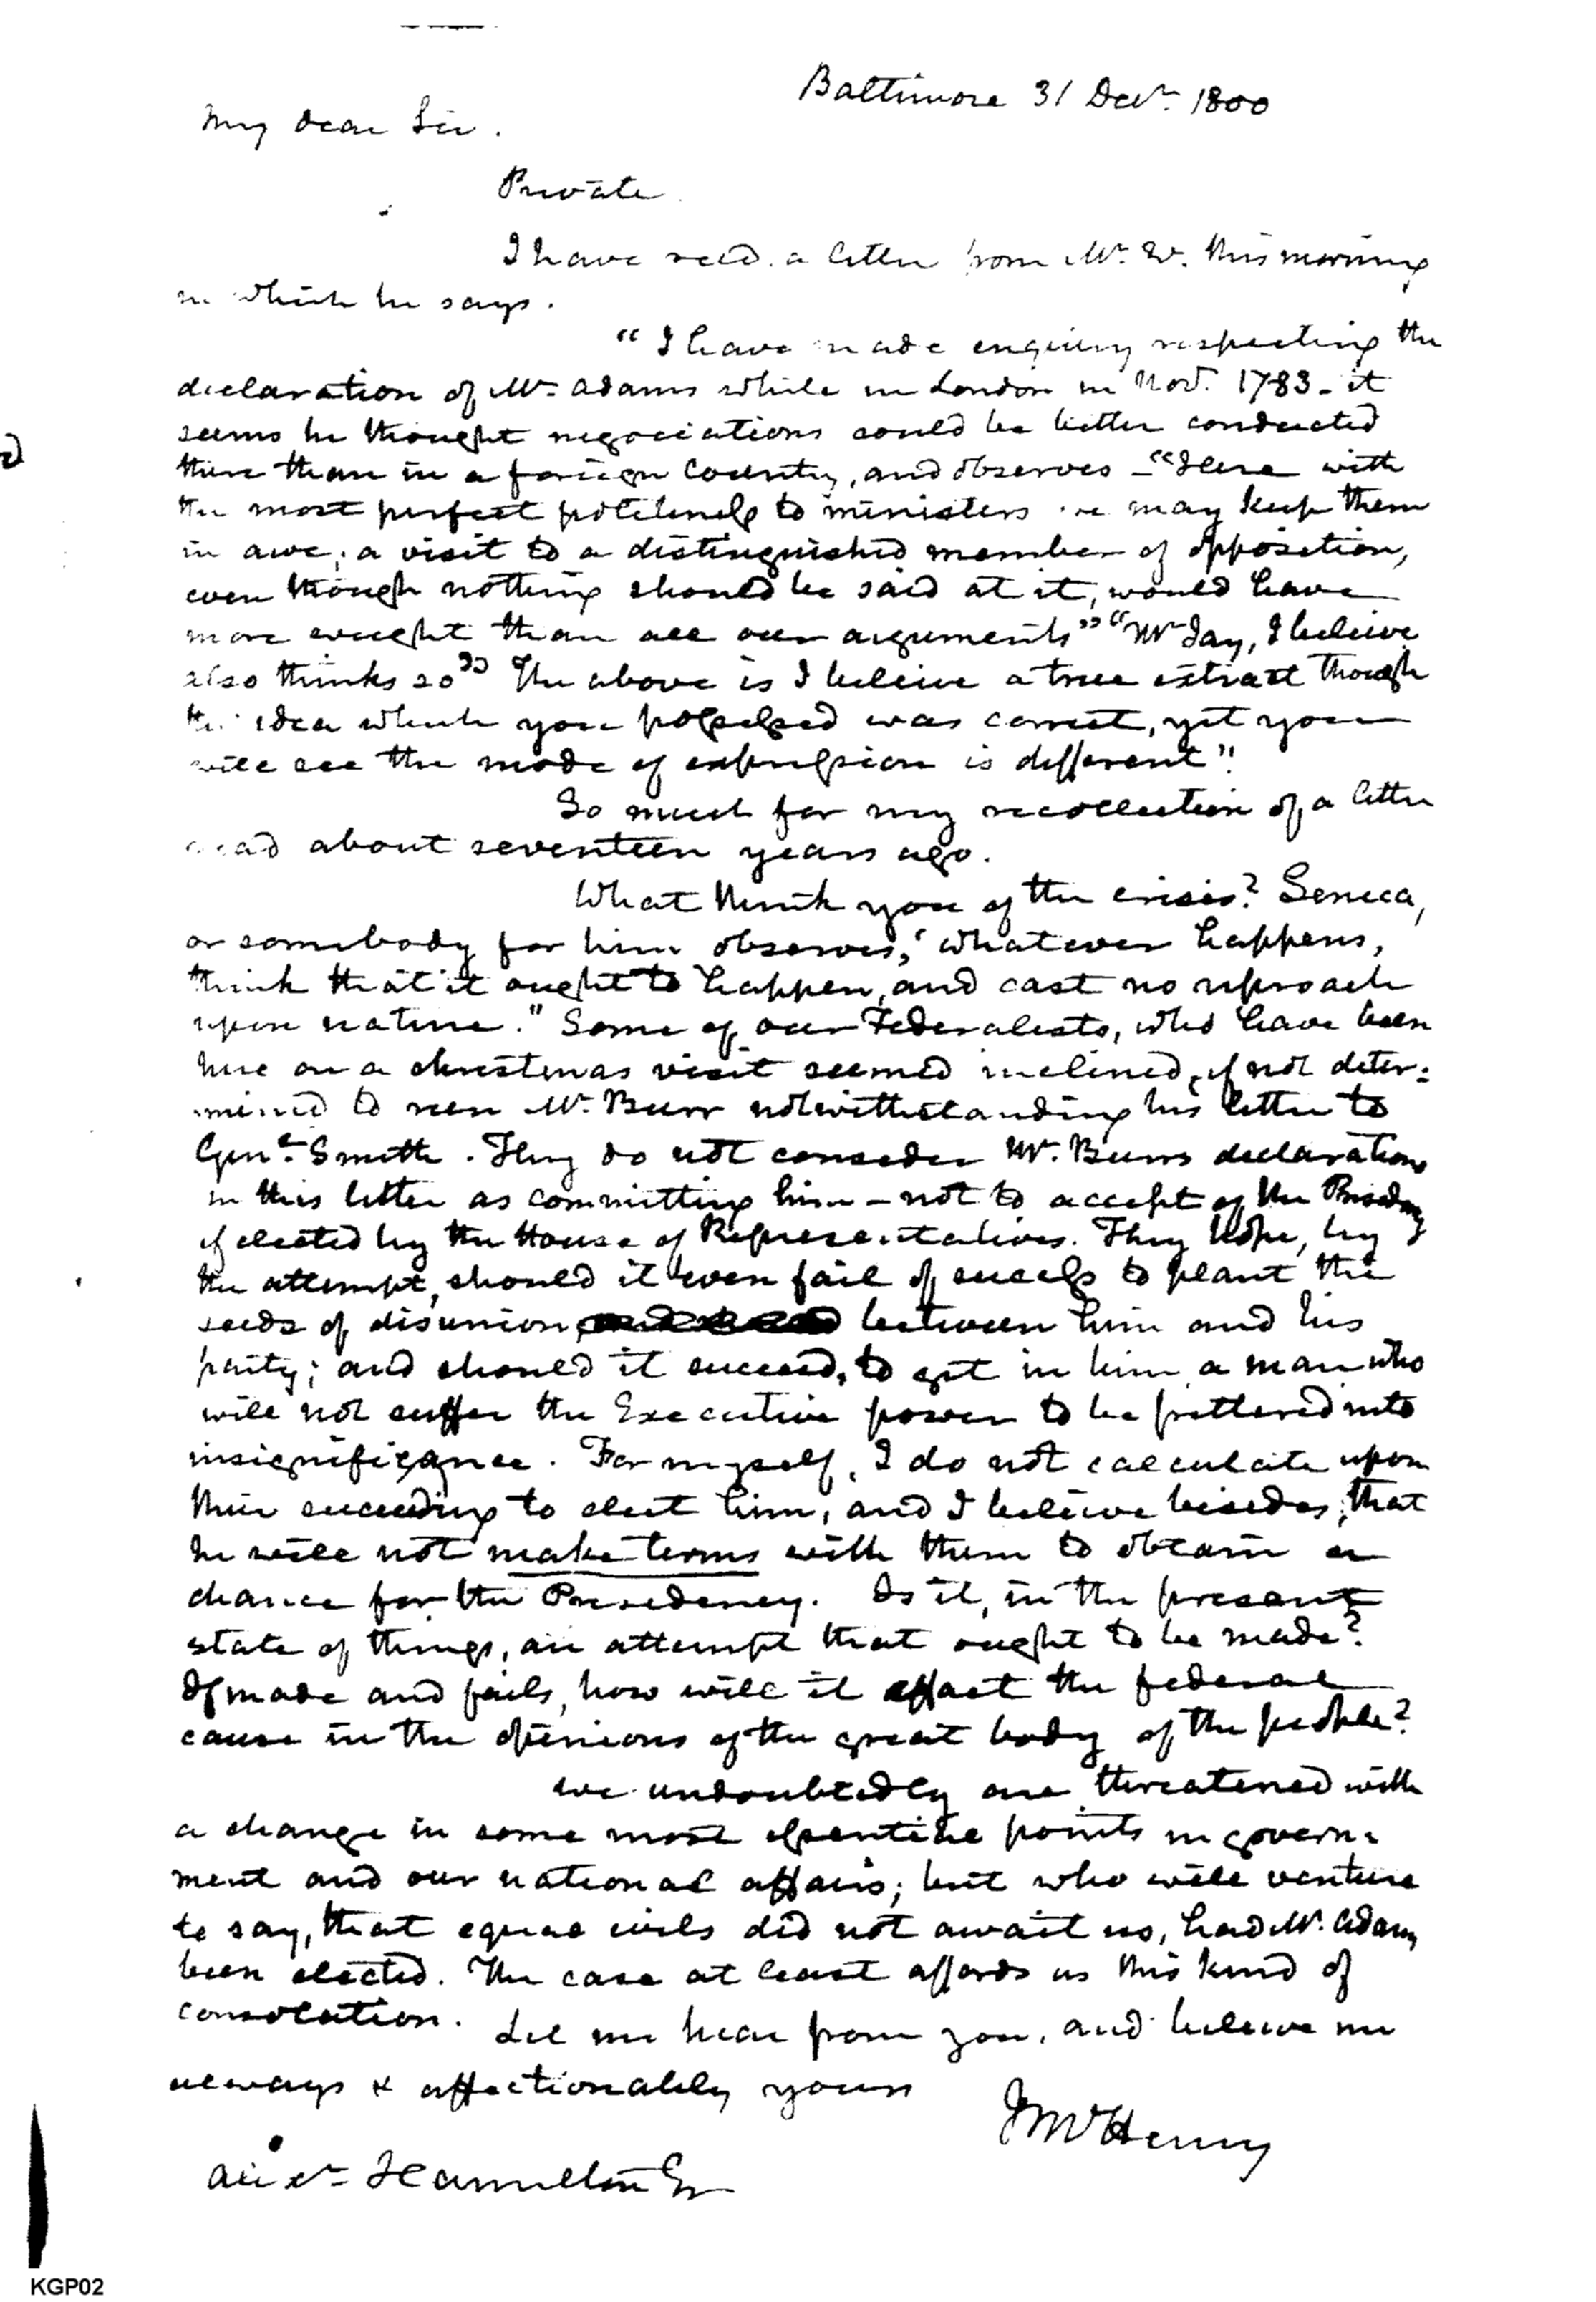 Baltimore 31 Decr. 1800
My dear Sir.
Private
I have recd. a letter from Mr. W. this morning
in which he says.
"I have made enquiry respecting the
declaration of Mr. Adams while in London in Novr. 1783 - it
seems he thought negociations could be better conducted
there than in a foreign Country, and observes - "Here with
the most perfect politeness to ministers we may keep them
in awe; a visit to a distinguished member of opposition,
even though nothing should be said at it, would have
more weight than all our arguments" "Mr Jay, I believe
also thinks so" The above is I believe a true extract though
the idea which you possessed was correct, yet you
will see the mode of expression is different".
So much for my recollection of a letter
read about seventeen years ago.
What think you of the crisis? Seneca,
or somebody for him observes, "whatever happens,
think that it ought to happen, and cast no reproach
upon nature." Some of our Federalists, who have been
here on a christmas visit seemed inclined, if not deter:
mined to run Mr. Burr notwithstanding his letter to
Genl. Smith. They do not consider Mr. Burrs declarations
in this letter as committing him - not to accept of the Presidency
if elected by the House of Representatives. They hope, by
the attempt, should it even fail of success to plant the
seeds of disunion between him and his
party; and should it succeed, to get in him a man who
will not suffer the Executive power to be frittered into
insignificance. For myself, I do not calculate upon
their succeeding to elect him, and I believe besides, that
he will not make terms with them to obtain a
chance for the Presidency. Is it, in the present
state of things, an attempt that ought to be made?
If made and fails, how will it affect the federal
cause in the opinions of the great body of the people?
We undoubtedly are threatened with
a change in some most essential points in govern:
ment and our national affairs; but who will venture
to say, that equal evils did not await us, had Mr. Adams
been elected. The case at least affords us this kind of
consolation. Let me hear from you, and believe me
always & affectionately yours
J McHenry
Alexr. Hamilton Esqr
KGP02